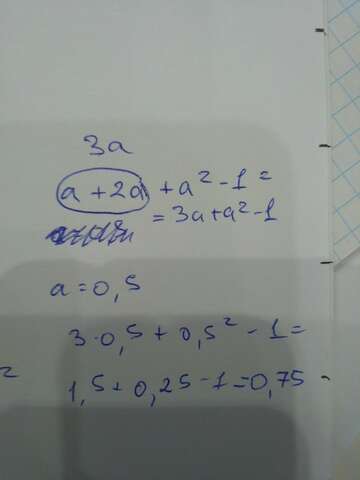 3a
a + 2a + a² - 1 =
= 3a + a² - 1
a = 0,5
3·0,5 + 0,5² - 1 =
1,5 + 0,25 - 1 = 0,75
2